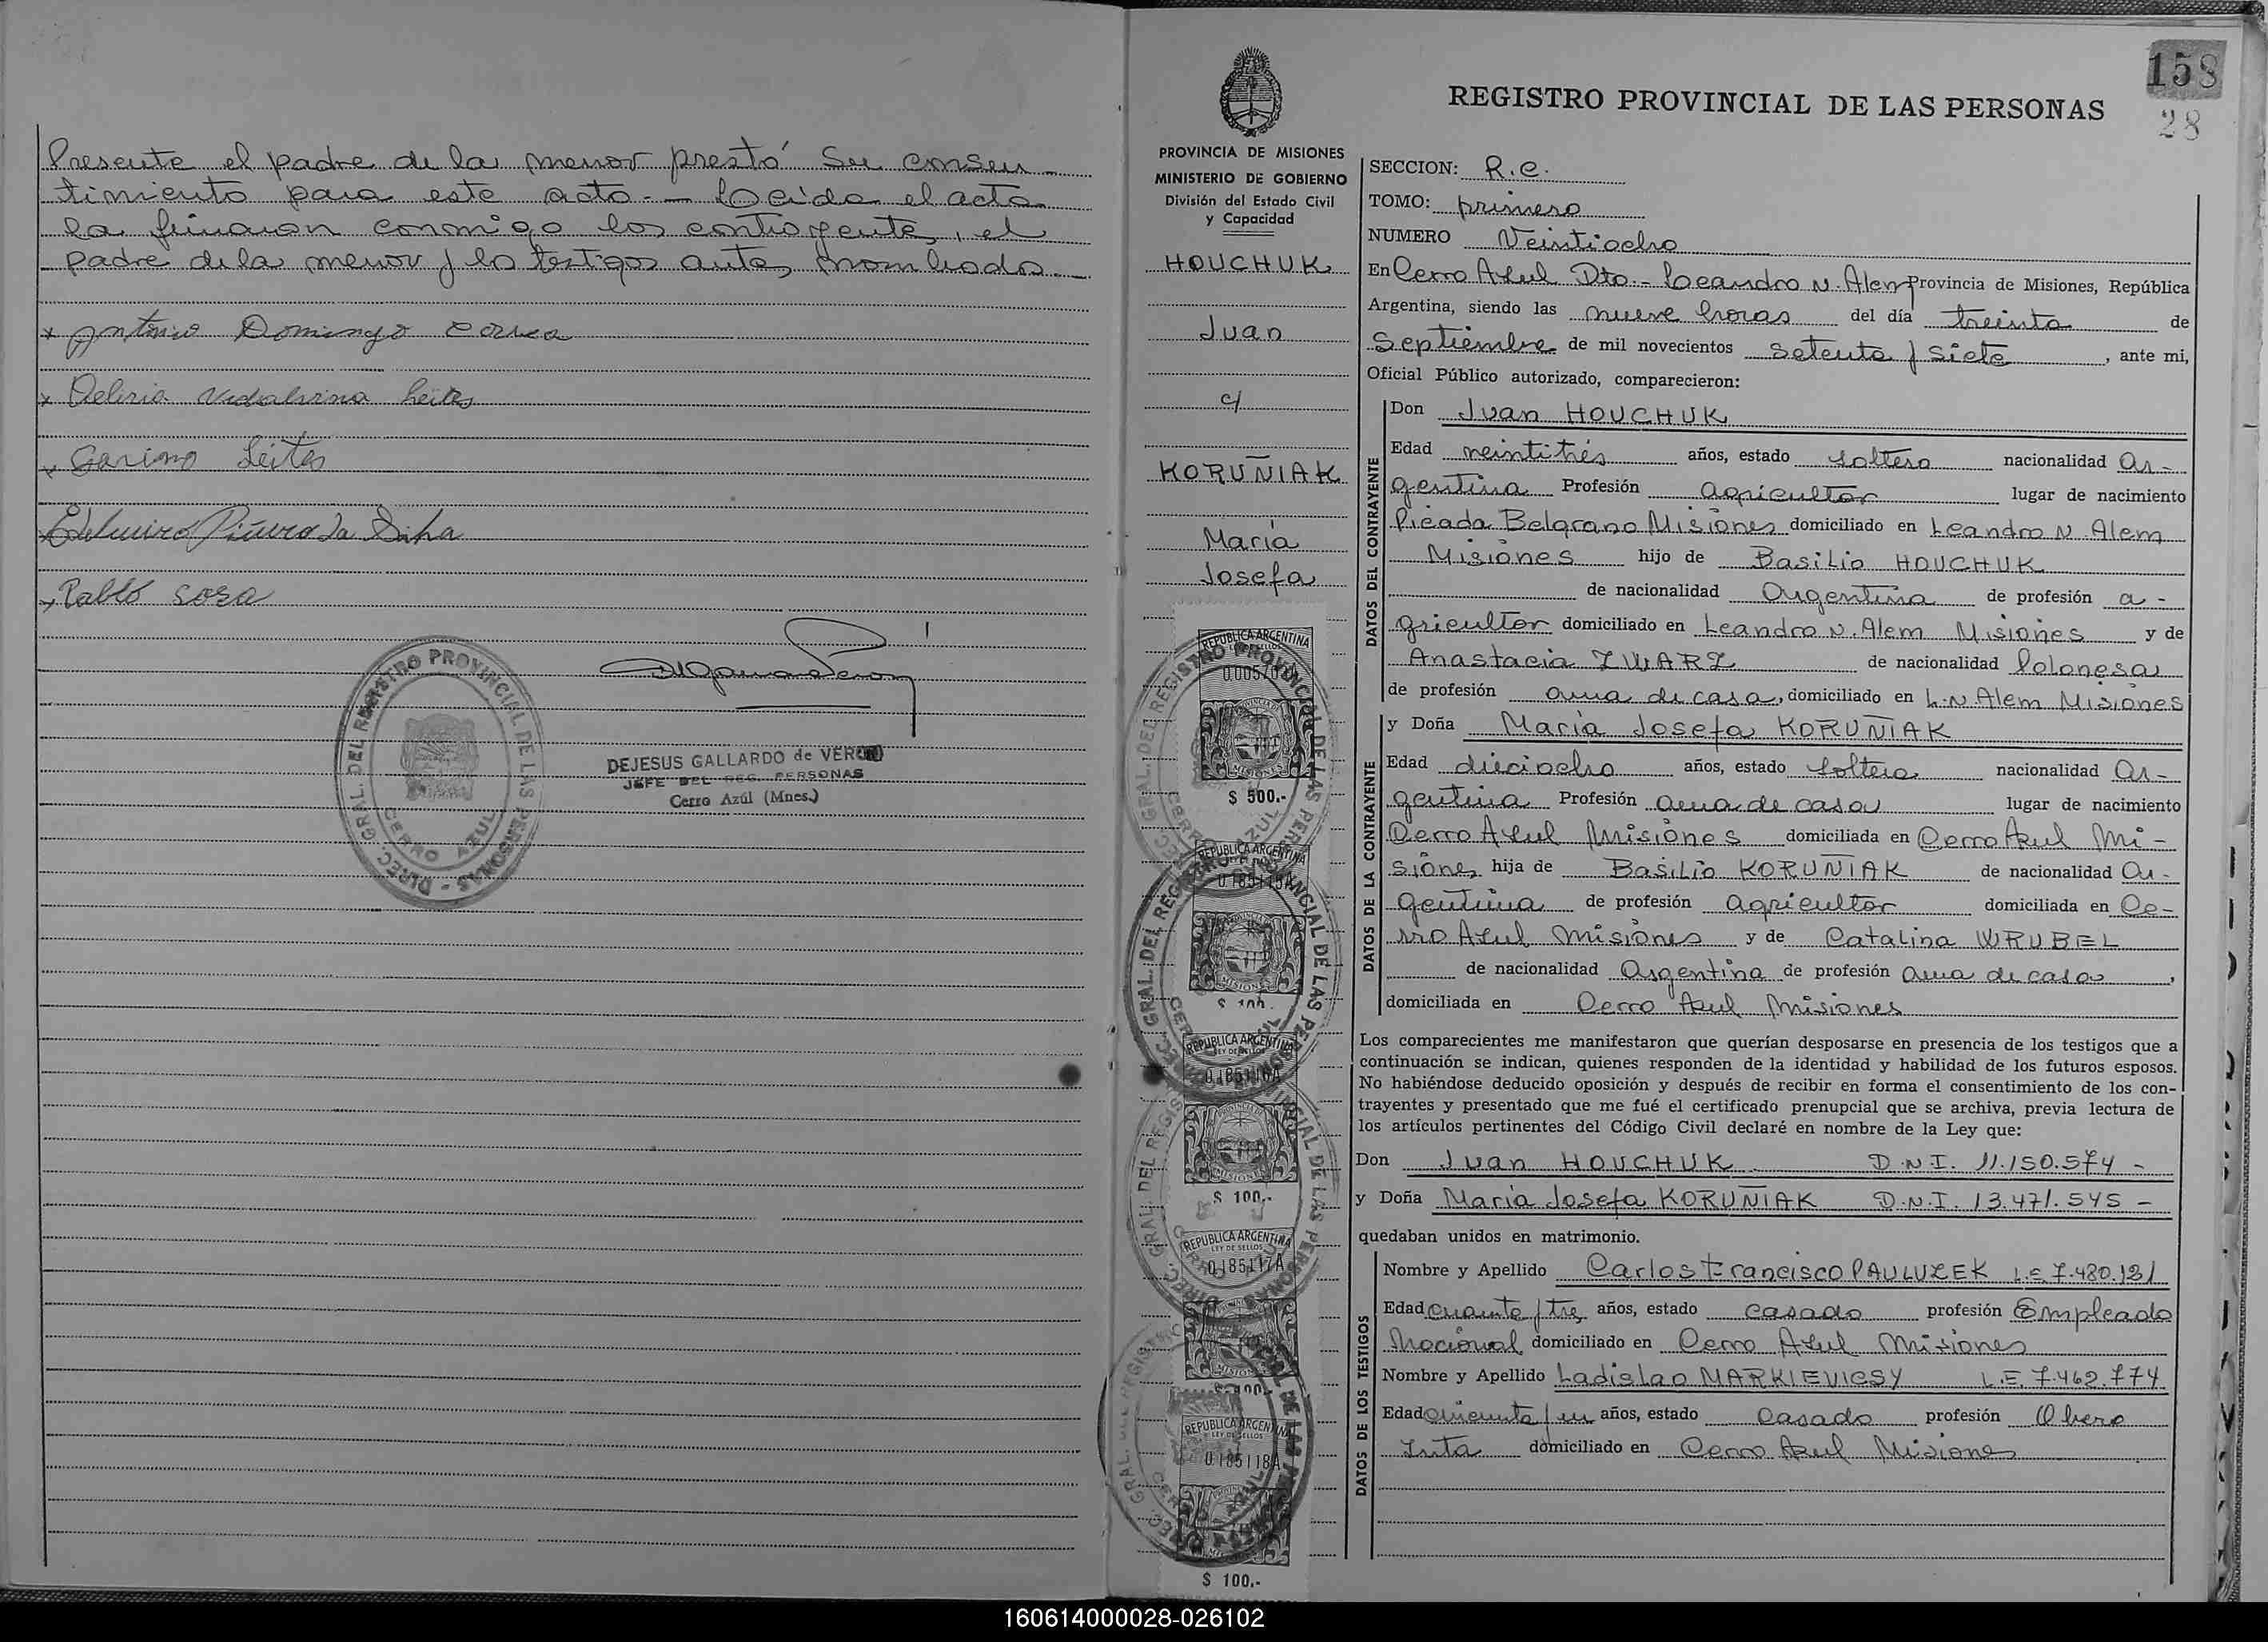 Presente el padre de la menor prestó su consen
timiento para este acto.- Leida el acta
la firmaron conmigo los contrayentes, el
padre de la menor y los testigos antes nombrados.-
x Antonio Domingo Correa
x Delicia Vidalvina Leites
x Garimo Leites
Edelmiro Piñeiro da Silha
x Pablo Sosa
DIREC. GRAL. DEL REGISTRO PROVINCIAL DE LAS PERSONAS
CERRO AZUL
DEJESUS GALLARDO de VERON
JEFE DEL REG. PERSONAS
Cerro Azúl (Mnes.)
158
28
REGISTRO PROVINCIAL DE LAS PERSONAS
PROVINCIA DE MISIONES
MINISTERIO DE GOBIERNO
División del Estado Civil
y Capacidad
HOUCHUK
Juan
c/
KORUÑIAK
María
Josefa
REPUBLICA ARGENTINA
$ 500.-
REPUBLICA ARGENTINA
0185115A
$ 100.
REPUBLICA ARGENTINA
LEY DE SELLOS
0185116A
MISIONES
$ 100.-
REPUBLICA ARGENTINA
LEY DE SELLOS
0185117A
$ 100.-
REPUBLICA ARGENTINA
LEY DE SELLOS
0185118A
$ 100.-
SECCION: R.C.
TOMO: primero
NUMERO Veintiocho
En Cerro Azul Dto.- Leandro N. Alem Provincia de Misiones, República
Argentina, siendo las nueve horas del día treinta de
Septiembre de mil novecientos setenta y siete, ante mi,
Oficial Público autorizado, comparecieron:
DATOS DEL CONTRAYENTE
Don Juan HOUCHUK
Edad veintitrés años, estado soltero nacionalidad Ar-
gentina Profesión agricultor lugar de nacimiento
Picada Belgrano Misiones domiciliado en Leandro N. Alem
Misiones hijo de Basilio HOUCHUK
de nacionalidad Argentina de profesión a-
gricultor domiciliado en Leandro N. Alem Misiones y de
Anastacia ZWARZ de nacionalidad Polonesa
de profesión ama de casa, domiciliado en L.N Alem Misiones
DATOS DE LA CONTRAYENTE
y Doña María Josefa KORUÑIAK
Edad dieciocho años, estado soltera nacionalidad Ar-
gentina Profesión ama de casa lugar de nacimiento
Cerro Azul Misiones domiciliada en Cerro Azul Mi-
siones hija de Basilio KORUÑIAK de nacionalidad Ar-
gentina de profesión agricultor domiciliada en Ce-
rro Azul Misiones y de Catalina WRUBEL
de nacionalidad Argentina de profesión ama de casa,
domiciliada en Cerro Azul Misiones
Los comparecientes me manifestaron que querían desposarse en presencia de los testigos que a
continuación se indican, quienes responden de la identidad y habilidad de los futuros esposos.
No habiéndose deducido oposición y después de recibir en forma el consentimiento de los con-
trayentes y presentado que me fué el certificado prenupcial que se archiva, previa lectura de
los artículos pertinentes del Código Civil declaré en nombre de la Ley que:
Don Juan HOUCHUK D.N.I. 11.150.574 -
y Doña María Josefa KORUÑIAK D.N.I. 13.471.545 -
quedaban unidos en matrimonio.
DATOS DE LOS TESTIGOS
Nombre y Apellido Carlos Francisco PAULUZEK L.E 7.480.131
Edad cuarenta y tres años, estado casado profesión Empleado
Nacional domiciliado en Cerro Azul Misiones
Nombre y Apellido Ladislao MARKIEVICSY L.E. 7.462.774
Edad cincuenta y un años, estado Casado profesión Obrero
Inta domiciliado en Cerro Azul Misiones
160614000028-026102